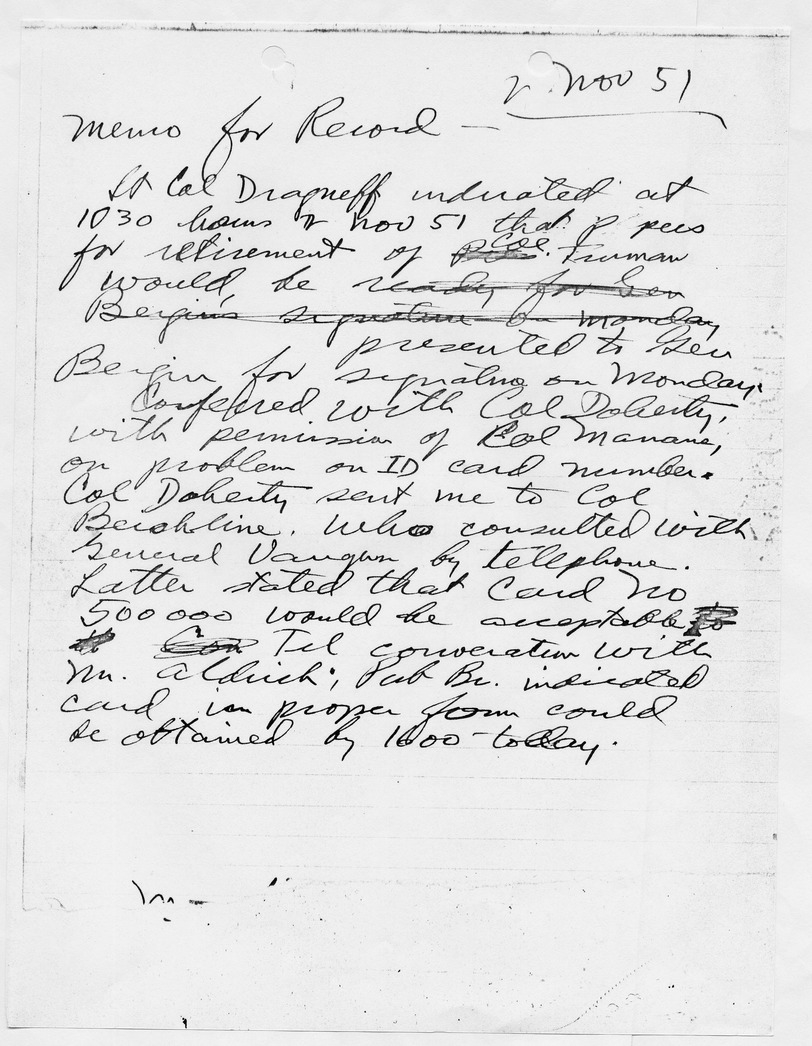 2 Nov 51
Memo for Record —
Lt Col Dragneff indicated at
1030 hours 2 Nov 51 that p pers
for retirement of Col. Truman
would be ready for Gen
Bergin's signature on Monday
presented to Gen
Bergin for signature on Monday.
Conferred with Col Doherty,
with permission of Col Manane,
on problem on ID card number.
Col Doherty sent me to Col
Beichline. Who consulted with
General Vaughn by telephone.
Latter stated that Card No
500000 would be acceptable to
Con Tel conversation with
Mr. Aldrich, Pub Br. indicated
card in proper form could
be obtained by 1600 today.